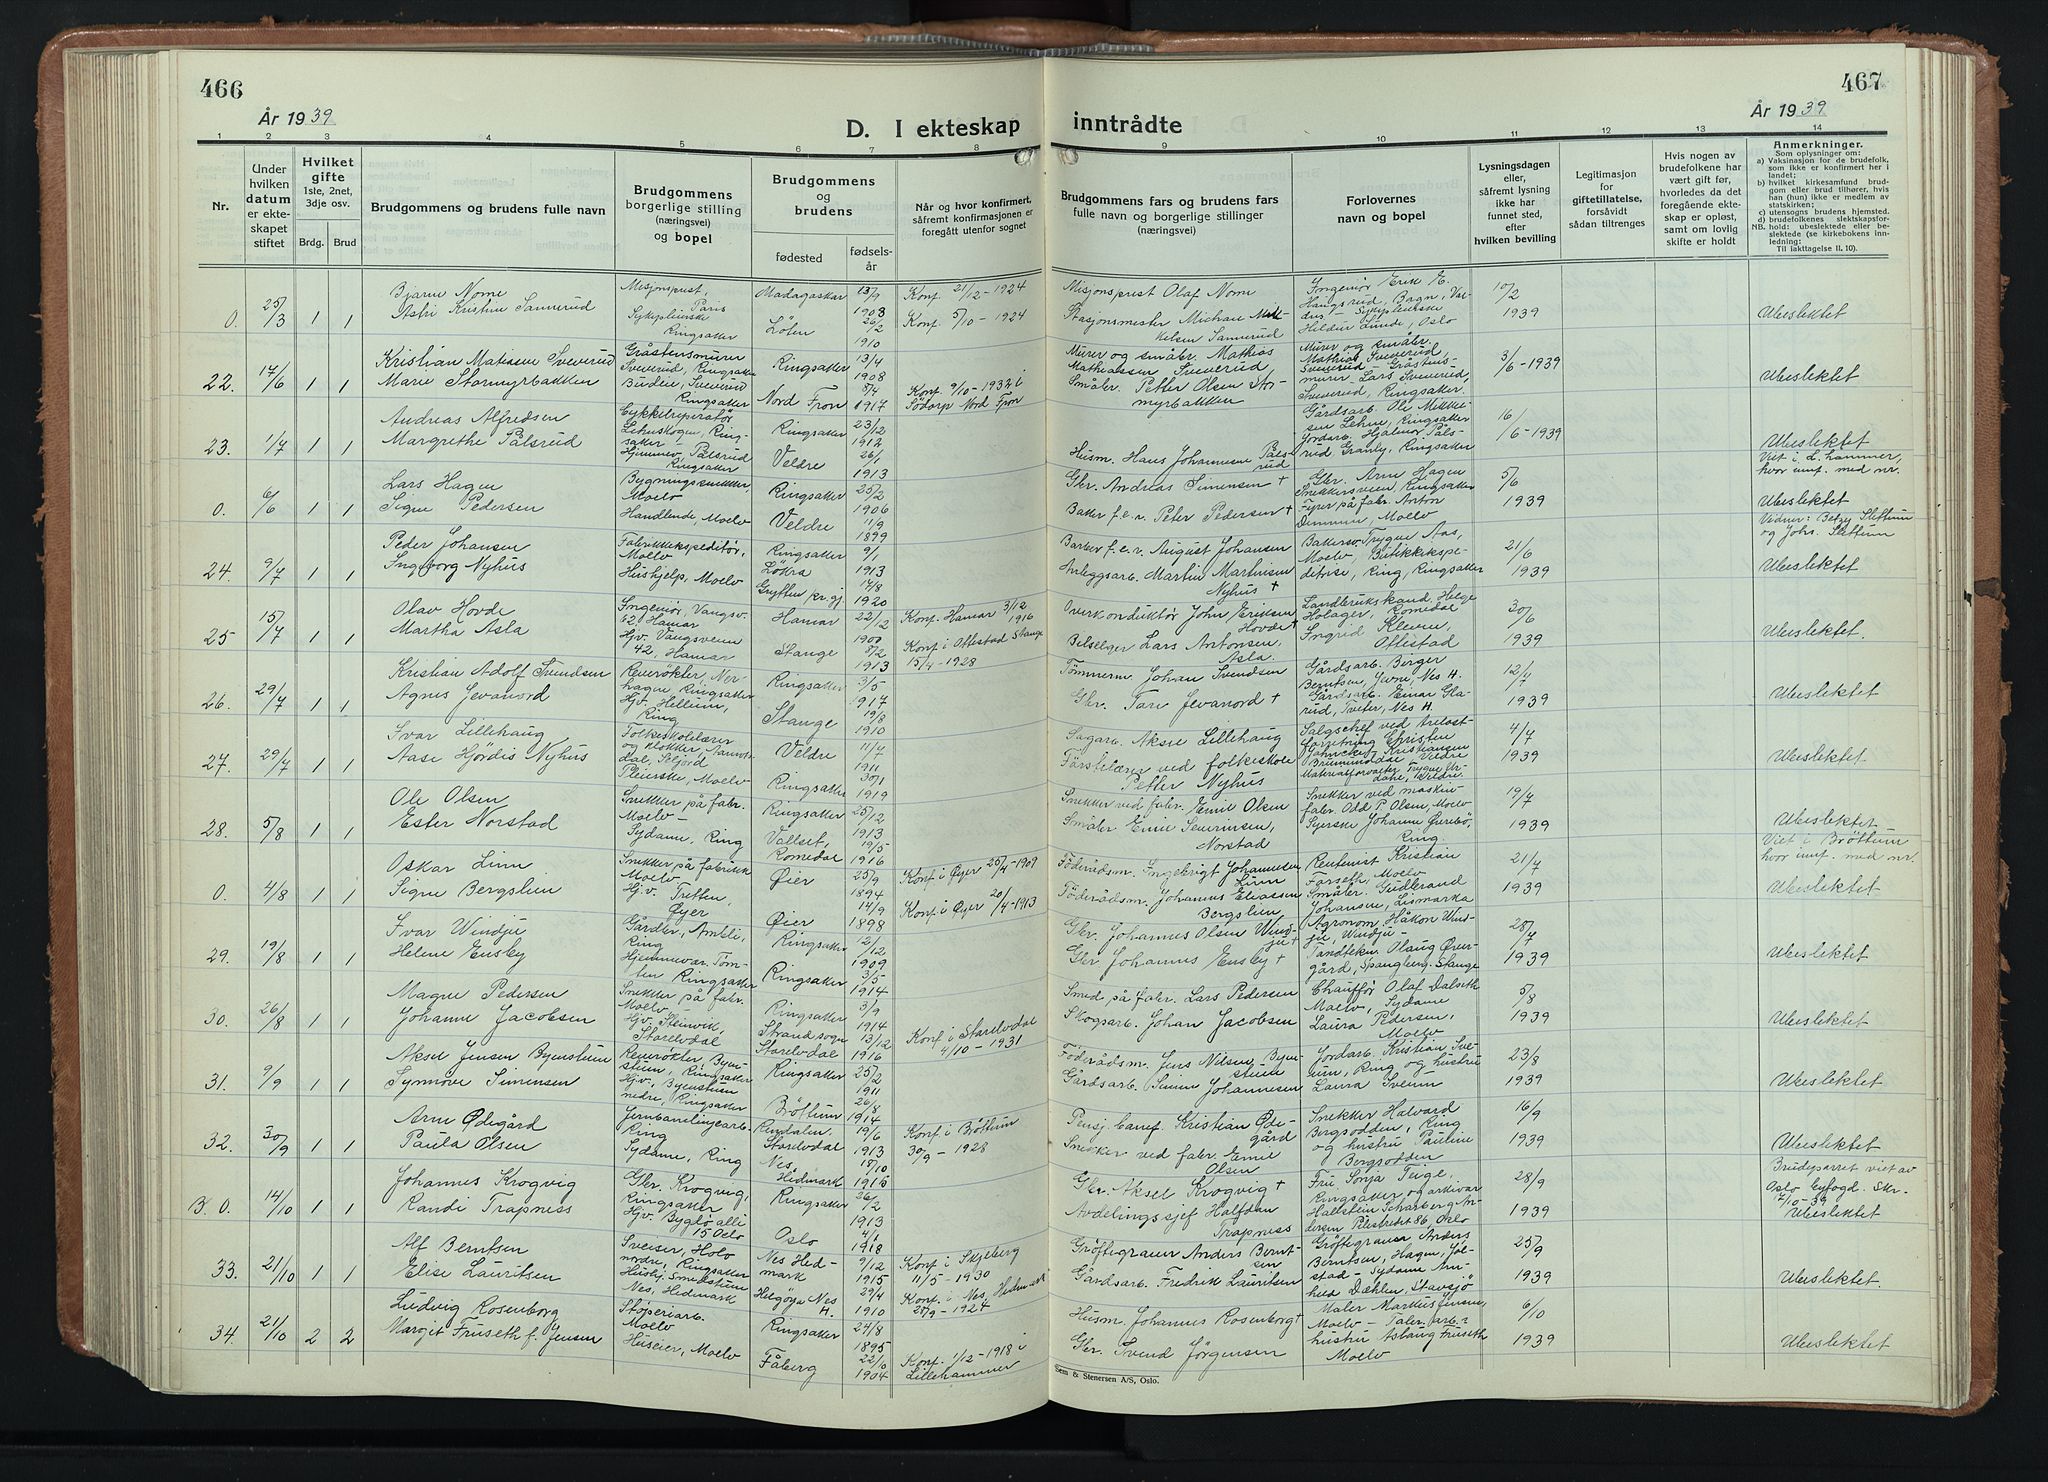 466
År 1939
D. I ekteskap
inntrådte
467
År 1939
1 2 3 4 5 6 7 8
9 10 11 12 13 14
Nr.
Under hvilken datum er ekteskapet stiftet
Hvilket gifte 1ste, 2net, 3dje osv.
Brdg. Brud
Brudgommens og brudens fulle navn
Brudgommens borgerlige stilling (næringsvei) og bopel
Brudgommens og brudens
fødested
fødselsår
Når og hvor konfirmert, såfremt konfirmasjonen er foregått utenfor sognet
Brudgommens fars og brudens fars fulle navn og borgerlige stillinger (næringsvei)
Forlovernes navn og bopel
Lysningsdagen eller, såfremt lysning ikke har funnet sted, efter hvilken bevilling
Legitimasjon for giftetillatelse, forsåvidt sådan tiltrenges
Hvis nogen av brudefolkene har vært gift før, hvorledes da det foregående ekteskap er opløst, samt om lovlig skifte er holdt
Anmerkninger.
Som oplysninger om:
a) Vaksinasjon for de brudefolk, som ikke er konfirmert her i landet;
b) hvilket kirkesamfund brudgom eller brud tilhører, hvis han (hun) ikke er medlem av statskirken;
c) utensogns brudens hjemsted.
d) brudefolkenes slektskapsforhold: ubeslektede eller beslektede (se kirkebokens innledning:
NB.
Til iakttagelse II. 10).
0. 25/3 1 1
Bjarne Nome
Astri Kristine Sannerud
Misjonsprest, Paris
Sykepleierske Ringsaker
Madagaskar 13/9 1903
Løten 26/2 1910
Konf. 21/12-1924
Konf. 5/10-1924
Misjonsprest Olaf Nome
Stasjonsmester Michael Mikkelsen Sannerud
Ingeniør Erik E. Haugsrud, Bagn, Valdres - Sykepleierske
Lunde, Oslo
10/2 1939
Ubeslektet
22. 17/6 1 1
Kristian Matiseus Sveverud
Marie Stormyrbakken
Gråstensmurer
Sveverud, Ringsaker
Budeie, Sveverud
Ringsaker
Ringsaker 13/4 1908
Nord Fron 8/4 1917
Konf. 9/10-1932 i
Södorp Nord Fron
Murer og småbr. Mathias
Mathiassen Sveverud
Småbr. Petter Olsen Stormyrbakken
Murer og småbr.
Mathias Sveverud,
Sveverud - Gråstensmurer Lars Sveverud,
Sveverud, Ringsaker.
3/6-1939
Ubeslektet
23. 1/7 1 1
Andreas Alfredsen
Margrethe Pålsrud
Cykkelreperatør
Lehneskogen, Ringsaker -
Hjemmev. Pålsrud
Ringsaker
Ringsaker 23/2 1912
Veldre 26/1 1913
Husm. Hans Johannesen Pålsrud
Gårdsarb. Ole Mikkelsen Lehne, Ringsaker
Jordarb. Hjalmar Pålsrud, Granly, Ringsaker
16/6-1939
Ubeslektet
0. 6/6 1 1
Lars Hagen
Signe Pedersen
Bygningssnekker,
Moelv
Handlende, Moelv
Ringsaker 25/2 1906
Veldre 11/9 1899
Gbr. Andreas Simensen +
Baker f.e.v. Peter Pedersen +
Gbr. Arne Hagen
Snekkersveen, Ringsaker
Fyrer på fabr. Anton
Moelv
5/6 1939
Viet i L.hammer,
hvor innf. med nr.
Ubeslektet
24. 9/7 1 1
Peder Johansen
Ingeborg Nyhus
Fabrikkekspeditør,
Moelv
Hushjelp, Moelv
Ringsaker 9/1 1913
Gryften pr. gj. 14/8 1920
Barber f.e.v. August Johansen
Anleggsarb. Martin Martinsen
Nyhus +
Bakersv. Trygve Aas,
Moelv, Butikkekspeditrise, Ring, Ringsaker
21/6 1939
Vidner: Betzy Slettum
og Johs. Slettum
Ubeslektet
25 15/7 1 1
Olav Hovde
Martha Asla
Ingeniør, Vangsv.
42, Hamar
Hjv. Vangsveien
42, Hamar
Hamar 22/12 1900
Stange 8/2 1913
Konf. Hamar 3/12 1916
Konf. i Ottestad Stange
15/4-1928
Overkonduktør John Eriksen
Hovde +
Lars Antonsen,
Asla.
Landbrukskand. Helge
Holager, Romedal
Ingrid Kleven,
Ottestad
30/6 1939
Ubeslektet.
26. 29/7 1 1
Kristian Adolf Svendsen
Agnes Jevanord
Revrøkter,
Ringsaker
Hjv. Hellum,
Ring
Ringsaker 3/5 1917
Stange 19/8 1910
Tömmerm. Johan Svendsen
Gbr. Tore Jevanord +
Gårdsarb. Birger
Berntsen, Nes H.
Gårdsarb. Einar Glarud, Tveter, Nes H.
12/7 1939
Ubeslektet
27. 29/7 1 1
Ivar Lillehaug
Aase Hjördis Nyhus
Folkeskolelærer
og klokker,
Seljord
Pleierske, Moelv
Veldre 11/4 1911
Ringsaker 30/1 1919
Sagarb. Aksel Lillehaug
Förstelærer ved folkeskole
Petter Nyhus
Salgschef ved
forretning Christen
Kristiansen
Brumunddal Veldre
Veldre
4/7 1939
Ubeslektet.
28. 5/8 1 1
Ole Olsen
Ester Norstad
Snekker på fabr.
Moelv -
Sydame, Ring
Ringsaker 25/12 1913
Vallset, Romedal 19/5 1916
Snekker ved fabr. Emil Olsen
Småbr. Emil Severinsen,
Norstad
Snekker ved maskinfabr. Odd P. Olsen, Moelv
Syerske Johanne
Ring.
19/7 1939
Ubeslektet
0. 4/8 1 1
Oskar Linn
Signe Bergslien
Snekker på fabrikk
Moelv
Hjv. Tretten,
Øyer
Øier 25/9 1894
Øier 14/9 1898
Konf. i Øyer 25/4-1909
Konf. i Øyer 20/4-1913
Föderådsm. Ingebrigt Johannesen
Linn
Föderådsm. Johannes Eliassen
Bergslien
Rentenist Kristian
Farseth, Moelv
Småbr. Gudbrand
Johansen, Lismarka
21/7 1939
Viet i Brøttum
hvor innf. med nr.
Ubeslektet
29. 19/8 1 1
Ivar Windju
Helene Ensby
Gårdbr.,
Ring
Hjemmevær.
Ringsaker
Ringsaker 2/12 1909
Ringsaker 3/5 1914
Gbr. Johannes Olsen Windju +
Gbr Johannes Ensby +
Agronom Håkon Windju, Windju -
Tandtekn. Olaug Övergård, Spangberg. Stange
28/7 1939
Ubeslektet
30. 26/8 1 1
Magne Pedersen
Johanne Jacobsen
Snekker på fabr.
Moelv
Hjv. Steinvik,
Storelvdal
Ringsaker 3/9 1914
Strand sogn Storelvdal 13/12 1916
Konf. i Storelvdal
4/10-1931
Smed på fabr. Lars Pedersen
Skogsarb. Johan Jacobsen
Chauffør Olaf Dalseth
Moelv, Sydame
Laura Pedersen,
Moelv
5/8 1939
Ubeslektet
31. 9/9 1 1
Aksel Jensen Byenstuen
Synnöve Simensen
Revrøkter,
Ringsaker
Hjv.
nedre, Ringsaker
Ringsaker 25/2 1911
Bröttum 26/8 1914
Föderådsm. Jens Nilsen
Gårdsarb. Simen Johannesen
Jordarb. Kristian Sveum, Ring og hustru
Laura Sveum
23/8 1939
Ubeslektet
32. 30/9 1 1
Arne Ødegård
Paula Olsen
Jernbanelinjearb.
Ring
Sydame, Ring
Rendalen Storelvdal 19/6 1913
Nes, Hedmark 18/10 1916
Konf. i Bröttum
30/9-1928
Pensj. banef. Kristian Ødegård
Snekker ved fabr. Emil
Olsen
Snekker Halvard
Bergsodden, Ring
og hustru Pauline
Bergsodden
16/9 1939
Ubeslektet
B. 0. 14/10 1 1
Johannes Krogvig
Randi Trapness
Gbr. Krogvig,
Ringsaker
Hjv. Bygdö allé
15 Oslo
Ringsaker 26/2 1913
Oslo 4/1 1918
Gbr. Aksel Krogvig +
Avdelingssjef Halfdan
Trapness
Fru Sonja Teigl,
Ringsaker og arkivar
Hallstein Scharberg Andersen Pilestredet 86, Oslo
28/9 1939
Brudeparret viet av
Oslo byfogd. Skr.
17/10-39
Ubeslektet
33. 21/10 1 1
Alf Berntsen
Elise Lauritsen
Sveiser, Holo
nordre, Ringsaker
Hushj. Smedstuen
Nes, Hedmark
Nes Hedmark 9/12 1915
Helgöya Nes H. 29/4 1910
Konf. i Skjeberg
11/5-1930
Konf. i Nes, Hedmark
28/9-1924
Gröftegraver Anders Berntsen
Gårdsarb. Fredrik Lauritsen
Gröftegraver Anders
Berntsen, Hagen, Jølstad - Sydame
Dæhlen, Stavsjö
25/9 1939
Ubeslektet
34. 21/10 2 2
Ludvig Rosenborg
Margit Fruseth f. Jensen
Støperiarb.
Moelv
Huseier, Moelv
Ringsaker 24/8 1895
Fåberg 22/10 1904
Konf. 1/12-1918 i
Lillehammer
Husm. Johannes Rosenborg +
Gbr. Svend Jörgensen
Maler Markus Jensen,
Moelv -
hustru Aslaug Fruseth
Moelv
6/10 1939
Ubeslektet
Sem & Stenersen A/S, Oslo.